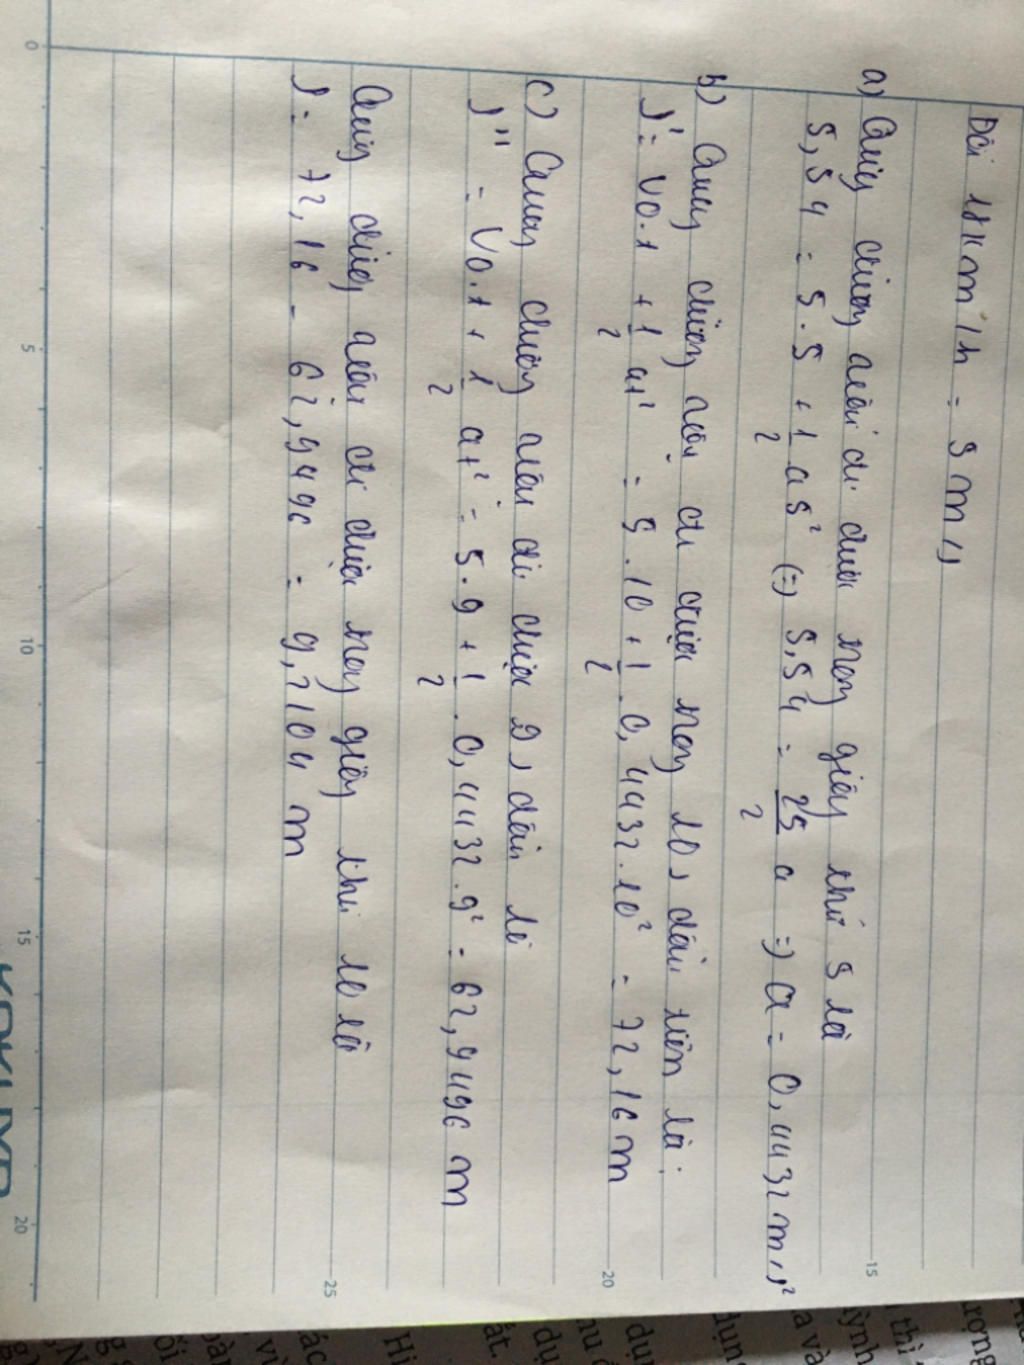 Đổi 18km/h = 5 m/s
a) Quãng đường vật đi được trong giây thứ 5 là
5,54 = 5.5 + 1/2 a5² (=) 5,54 = 25/2 a =) a = 0,4432 m/s²
b) Quãng đường vật đi được trong 10s đầu tiên là:
s' = v0.t + 1/2 at² = 5.10 + 1/2 . 0,4432.10² = 72,16 m
c) Quãng đường vật đi được 9s đầu là
s'' = v0.t + 1/2 at² = 5.9 + 1/2 . 0,4432.9² = 62,9496 m
Quãng đường vật đi được trong giây thứ 10 là
s = 72,16 - 62,9496 = 9,2104 m
0
5
10
15
20
15
20
25